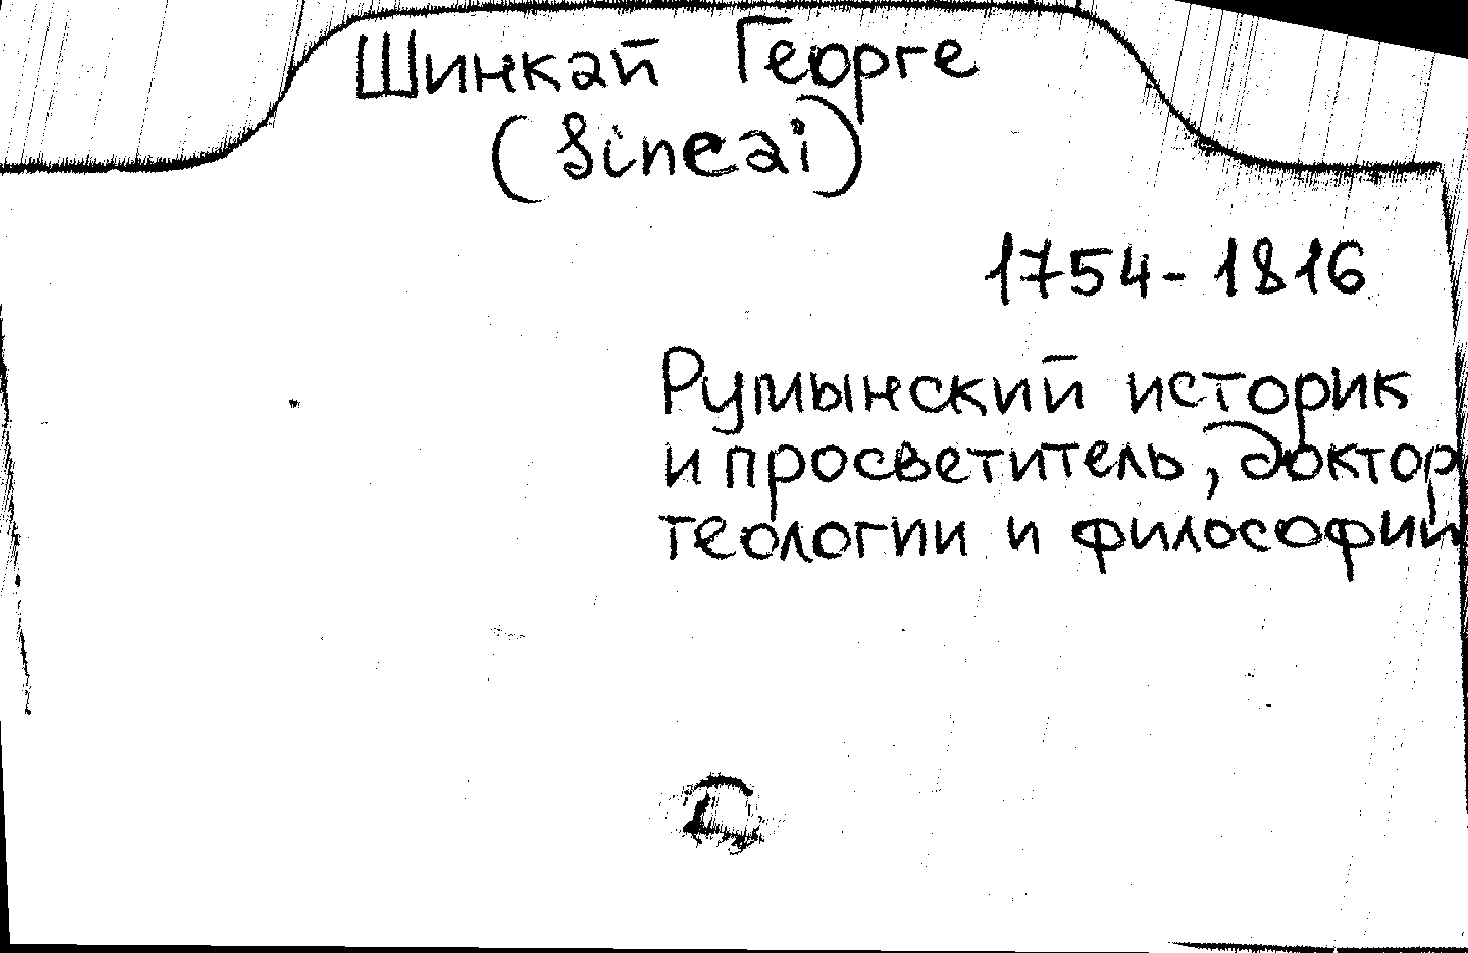 Шинкай Георге
(Sincai)
1754-1816
Румынский историк
и просветитель, доктор
теологии и философии